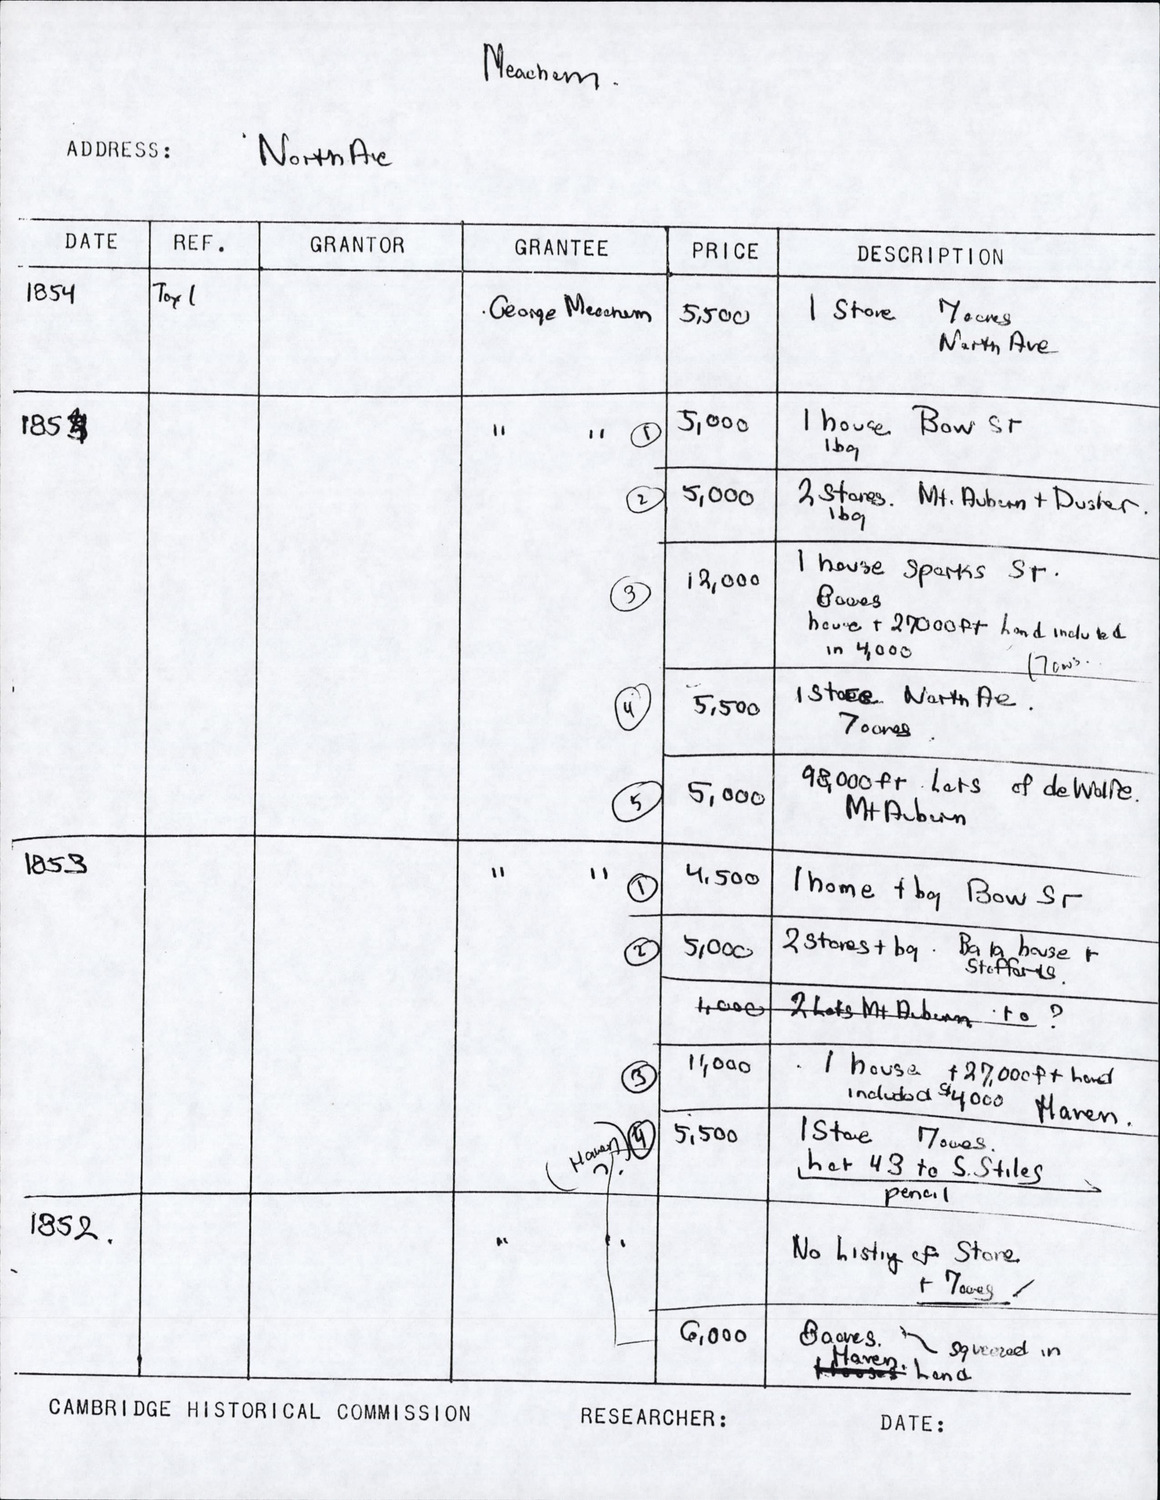 Meachem.
ADDRESS: North Ave
DATE REF. GRANTOR GRANTEE PRICE DESCRIPTION
1854 Tax 1 George Meachem 5,500 1 Store 7 acres
North Ave
185 " " 1 5,000 1 house Bow St
1 bg
2 5,000 2 Stores. Mt. Auburn + Duster.
1 bg
3 12,000 1 house Sparks St.
house + 27000 ft land included
in 4,000
4 5,500 1 Store North Ave.
7 acres.
5 5,000 98,000 ft Lots of deWolfe.
Mt Auburn
1853 " " 1 4,500 1 home + bg Bow St
2 5,000 2 Stores + bg. house +
1,000 2 Lots Mt Auburn to ?
3 11,000 1 house + 27,000 ft land
included $4000 Haven.
4 5,500 1 Store 7 acres.
(Haven)
?. Lot 43 to S. Stiles
pencil
1852. " " No Listing of Store
+ 7 acres
6,000
squeezed in
Haven. Land
CAMBRIDGE HISTORICAL COMMISSION RESEARCHER: DATE: